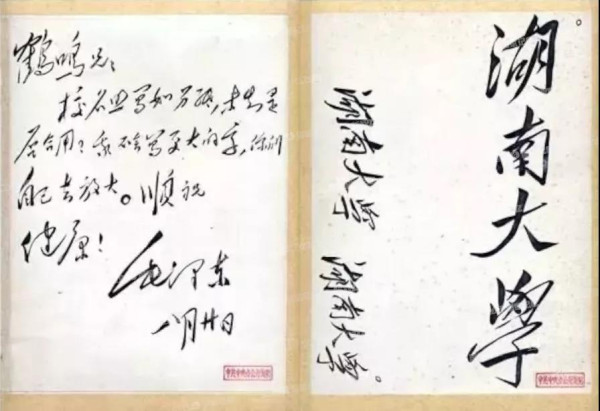 鶴鳴兄：
校名照写如另纸，未知是
否合用？我不会写更大的字，你们
自己去放大。顺祝
健康！
毛泽东
八月廿日
湖南大學。
湖南大學 湖南大學。